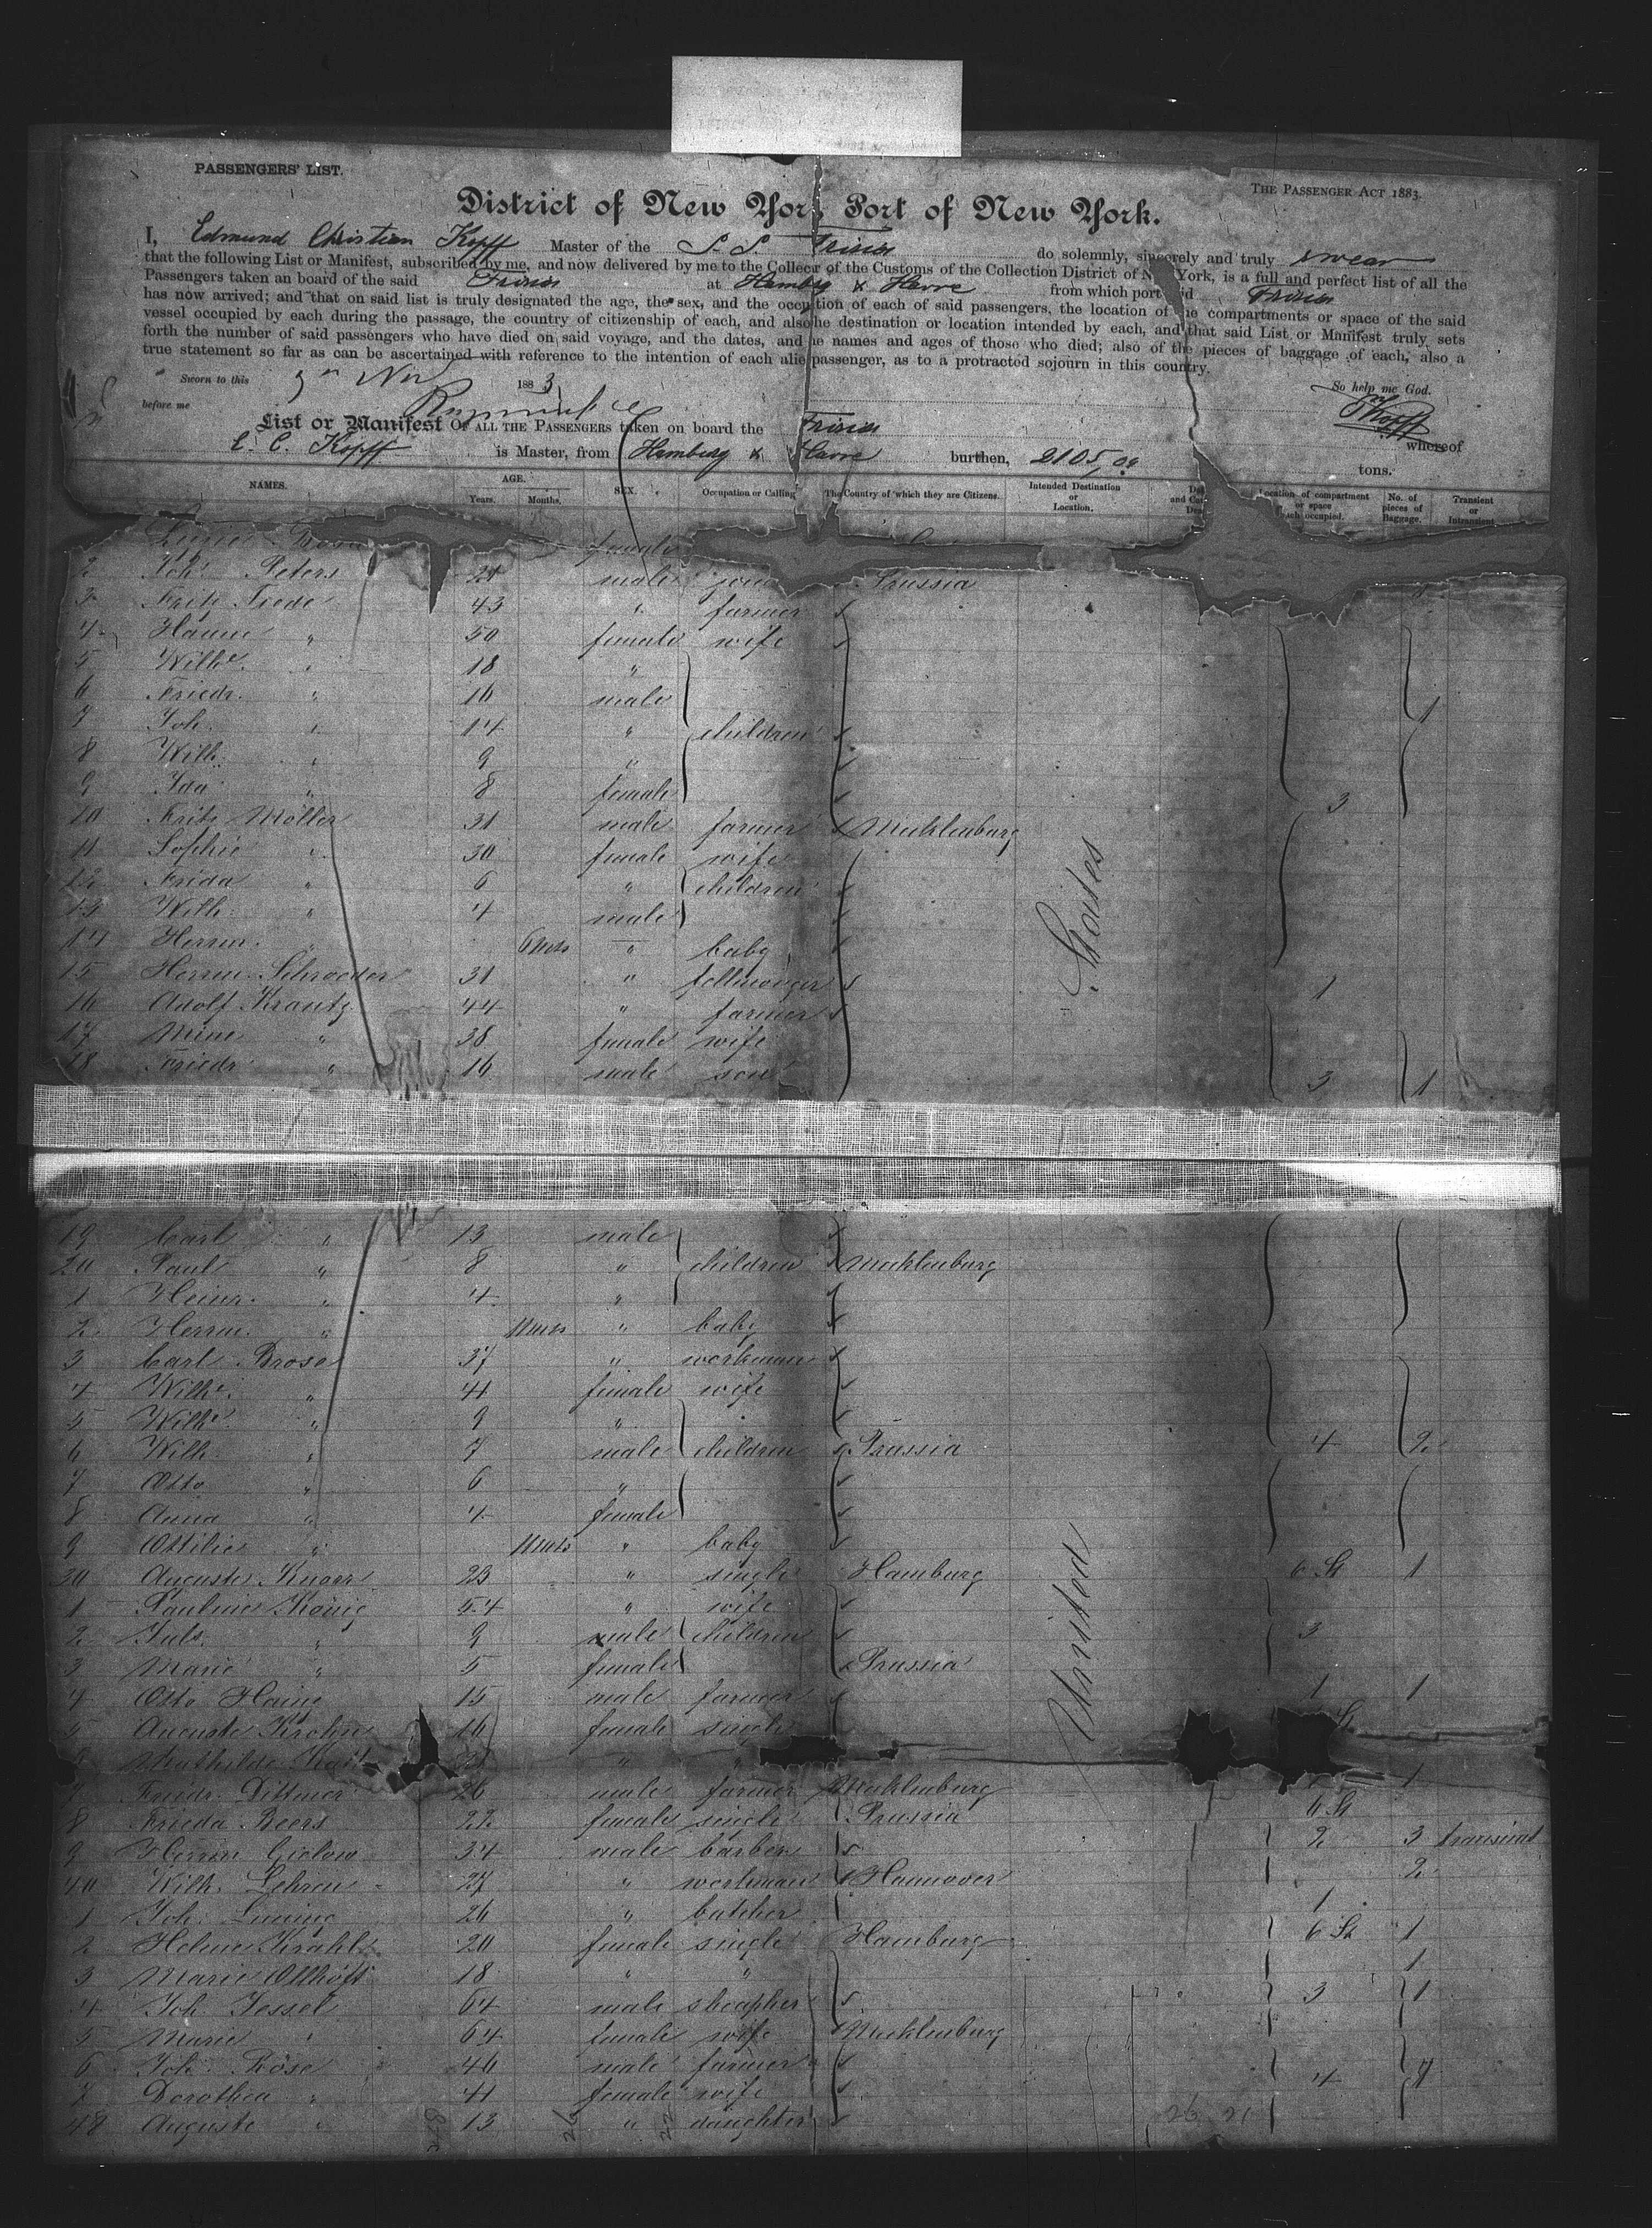 PASSENGERS' LIST.
THE PASSENGER ACT 1883.
District of New York Port of New York.
I, Edmund Christian Kopff Master of the S. S. Frisia do solemnly, sincerely and truly swear
that the following List or Manifest, subscribed by me, and now delivered by me to the Collec r of the Customs of the Collection District of N York, is a full and perfect list of all the
Passengers taken an board of the said Frisia at Hamburg & Havre from which port id Frisia
has now arrived; and that on said list is truly designated the age, the sex, and the occu tion of each of said passengers, the location of he compartments or space of the said
vessel occupied by each during the passage, the country of citizenship of each, and also he destination or location intended by each, and that said List or Manifest truly sets
forth the number of said passengers who have died on said voyage, and the dates, and e names and ages of those who died; also of the pieces of baggage of each, also a
true statement so far as can be ascertained with reference to the intention of each alie passenger, as to a protracted sojourn in this country.
Sworn to this Nov 1883
So help me God.
before me
Kopff
List or Manifest OF ALL THE PASSENGERS taken on board the Frisia whereof
C. C. Kopff is Master, from Hamburg & Havre burthen, 2105,09 tons.
NAMES. AGE. Years. Months. SEX. Occupation or Calling The Country of which they are Citizens. Intended Destination or Location. Location of compartment or space ch occupied. No. of pieces of Baggage. Transient or Intransient
female
2 Joh. Peters 21 male Prussia
3 Fritz Tiede 43 " farmer
4 Hanne " 50 female wife
5 Wilhe. " 18 "
6 Friedr. " 16 male 1
7 Joh. " 14 " children
8 Wilh. " 9 "
9 Ida " 8 female 3
10 Fritz Möller 31 male farmer Mecklenburg
11 Sophie " 30 female wife
12 Frida " 6 " children
13 Wilh. " 4 male
14 Herrm. " 6 mos " baby
15 Herrm. Schroeder 31 " fellmonger 1
16 Adolf Krantz 44 " farmer
17 Mine " 38 female wife
18 Friedr. " 16 male son 3 1
States
19 Carl " 13 male
20 Paul " 8 " children Mecklenburg
1 Heinr. " 4 "
2 Herrm. " 11 mos " baby
3 Carl Brose 37 " workman
4 Wilhe. " 41 female wife
5 Wilhe. " 9 "
6 Wilh. " 7 male children Prussia 4 2
7 Otto " 6 "
8 Anna " 4 female
9 Ottilie " 11 mos " baby
30 Auguste Knorr 23 " single Hamburg 6 St 1
1 Pauline König 54 " wife
2 Juls. " 9 male children 3
3 Marie " 5 female Prussia
4 Otto Haing 15 male farmer 1 1
5 Auguste Krohn 16 female single
Mathilde "
7 Friedr. Dittmer 26 male farmer Mecklenburg 1
8 Frieda Beers 22 female single Prussia 6 St
9 Herrm. Gielow 34 male barber 2 3 transient
40 Wilh. Lehren 27 " workman Hannover 2
1 Joh. Luning 26 " butcher 1
2 Helene Krahl 20 female single Hamburg 6 St 1
3 Marie Ollhöft 18 " " 1
4 Joh. Jessel 64 male sheapher 3 1
5 Marie " 64 female wife Mecklenburg
6 Joh. Böse 46 male farmer
7 Dorothea " 41 female wife 4
48 Auguste " 13 " daughter
United